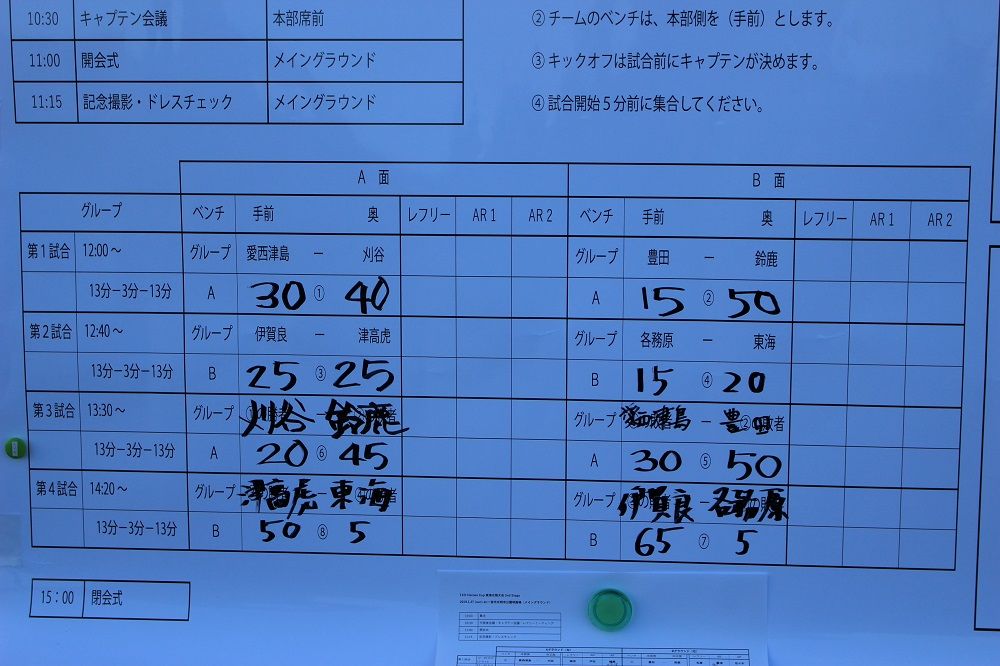 10:30 キャプテン会議 本部席前
11:00 開会式 メイングラウンド
11:15 記念撮影・ドレスチェック メイングラウンド
② チームのベンチは、本部側を（手前）とします。
③ キックオフは試合前にキャプテンが決めます。
④ 試合開始５分前に集合してください。
A 面 B 面
グループ ベンチ 手前 奥 レフリー AR 1 AR 2 ベンチ 手前 奥 レフリー AR 1 AR 2
第１試合 12:00～ グループ 愛西津島 － 刈谷 グループ 豊田 － 鈴鹿
13分－3分－13分 A 30 ① 40 A 15 ② 50
第２試合 12:40～ グループ 伊賀良 － 津高虎 グループ 各務原 － 東海
13分－3分－13分 B 25 ③ 25 B 15 ④ 20
第３試合 13:30～ グループ 刈谷 － 鈴鹿 グループ 愛西津島 － 豊田
13分－3分－13分 A 20 ⑥ 45 A 30 ⑤ 50
第４試合 14:20～ グループ 津高虎 東海 グループ 伊賀良 － 各務原
13分－3分－13分 B 50 ⑧ 5 B 65 ⑦ 5
15：00 閉会式